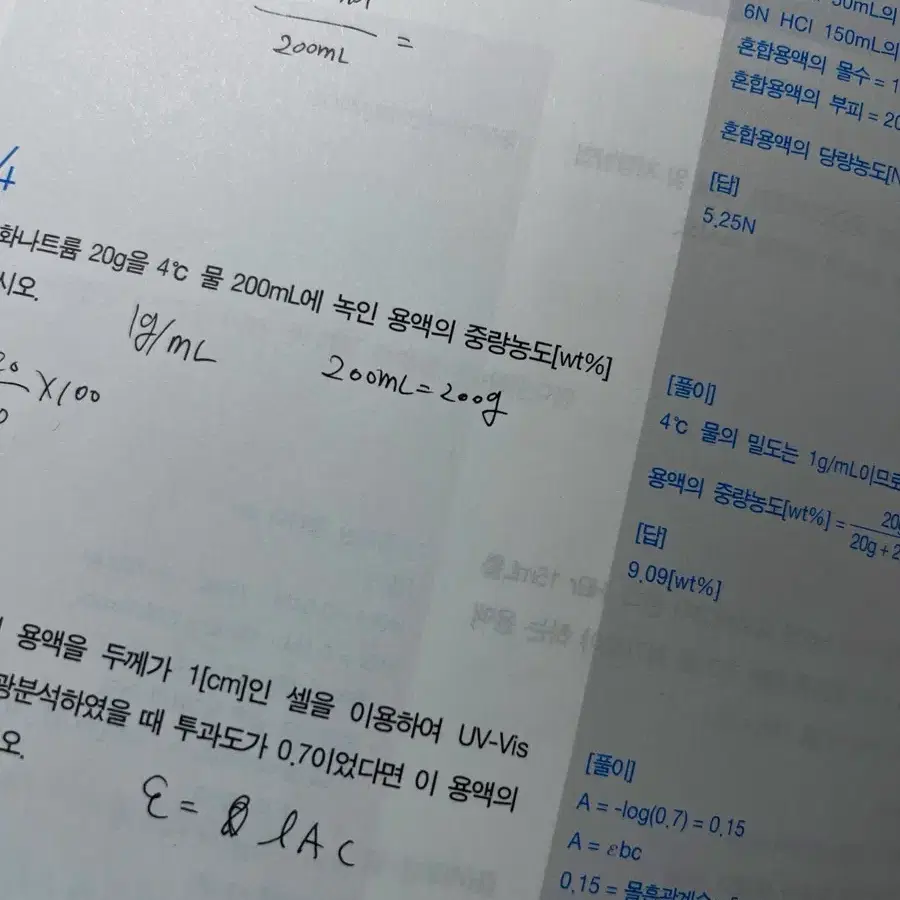 200mL =
화나트륨 20g을 4℃ 물 200mL에 녹인 용액의 중량농도[wt%]
시오.
1g/mL
200mL=200g
20
X100
용액을 두께가 1[cm]인 셀을 이용하여 UV-Vis
광분석하였을 때 투과도가 0.7이었다면 이 용액의
오.
ε = l A C
6N HCl 150mL의
혼합용액의 몰수 = 1
혼합용액의 부피 = 20
혼합용액의 당량농도[N
[답]
5.25N
[풀이]
4℃ 물의 밀도는 1g/mL이므로
용액의 중량농도[wt%] = 20g
20g + 2
[답]
9.09[wt%]
[풀이]
A = -log(0.7) = 0.15
A = εbc
0.15 = 몰흡광계수